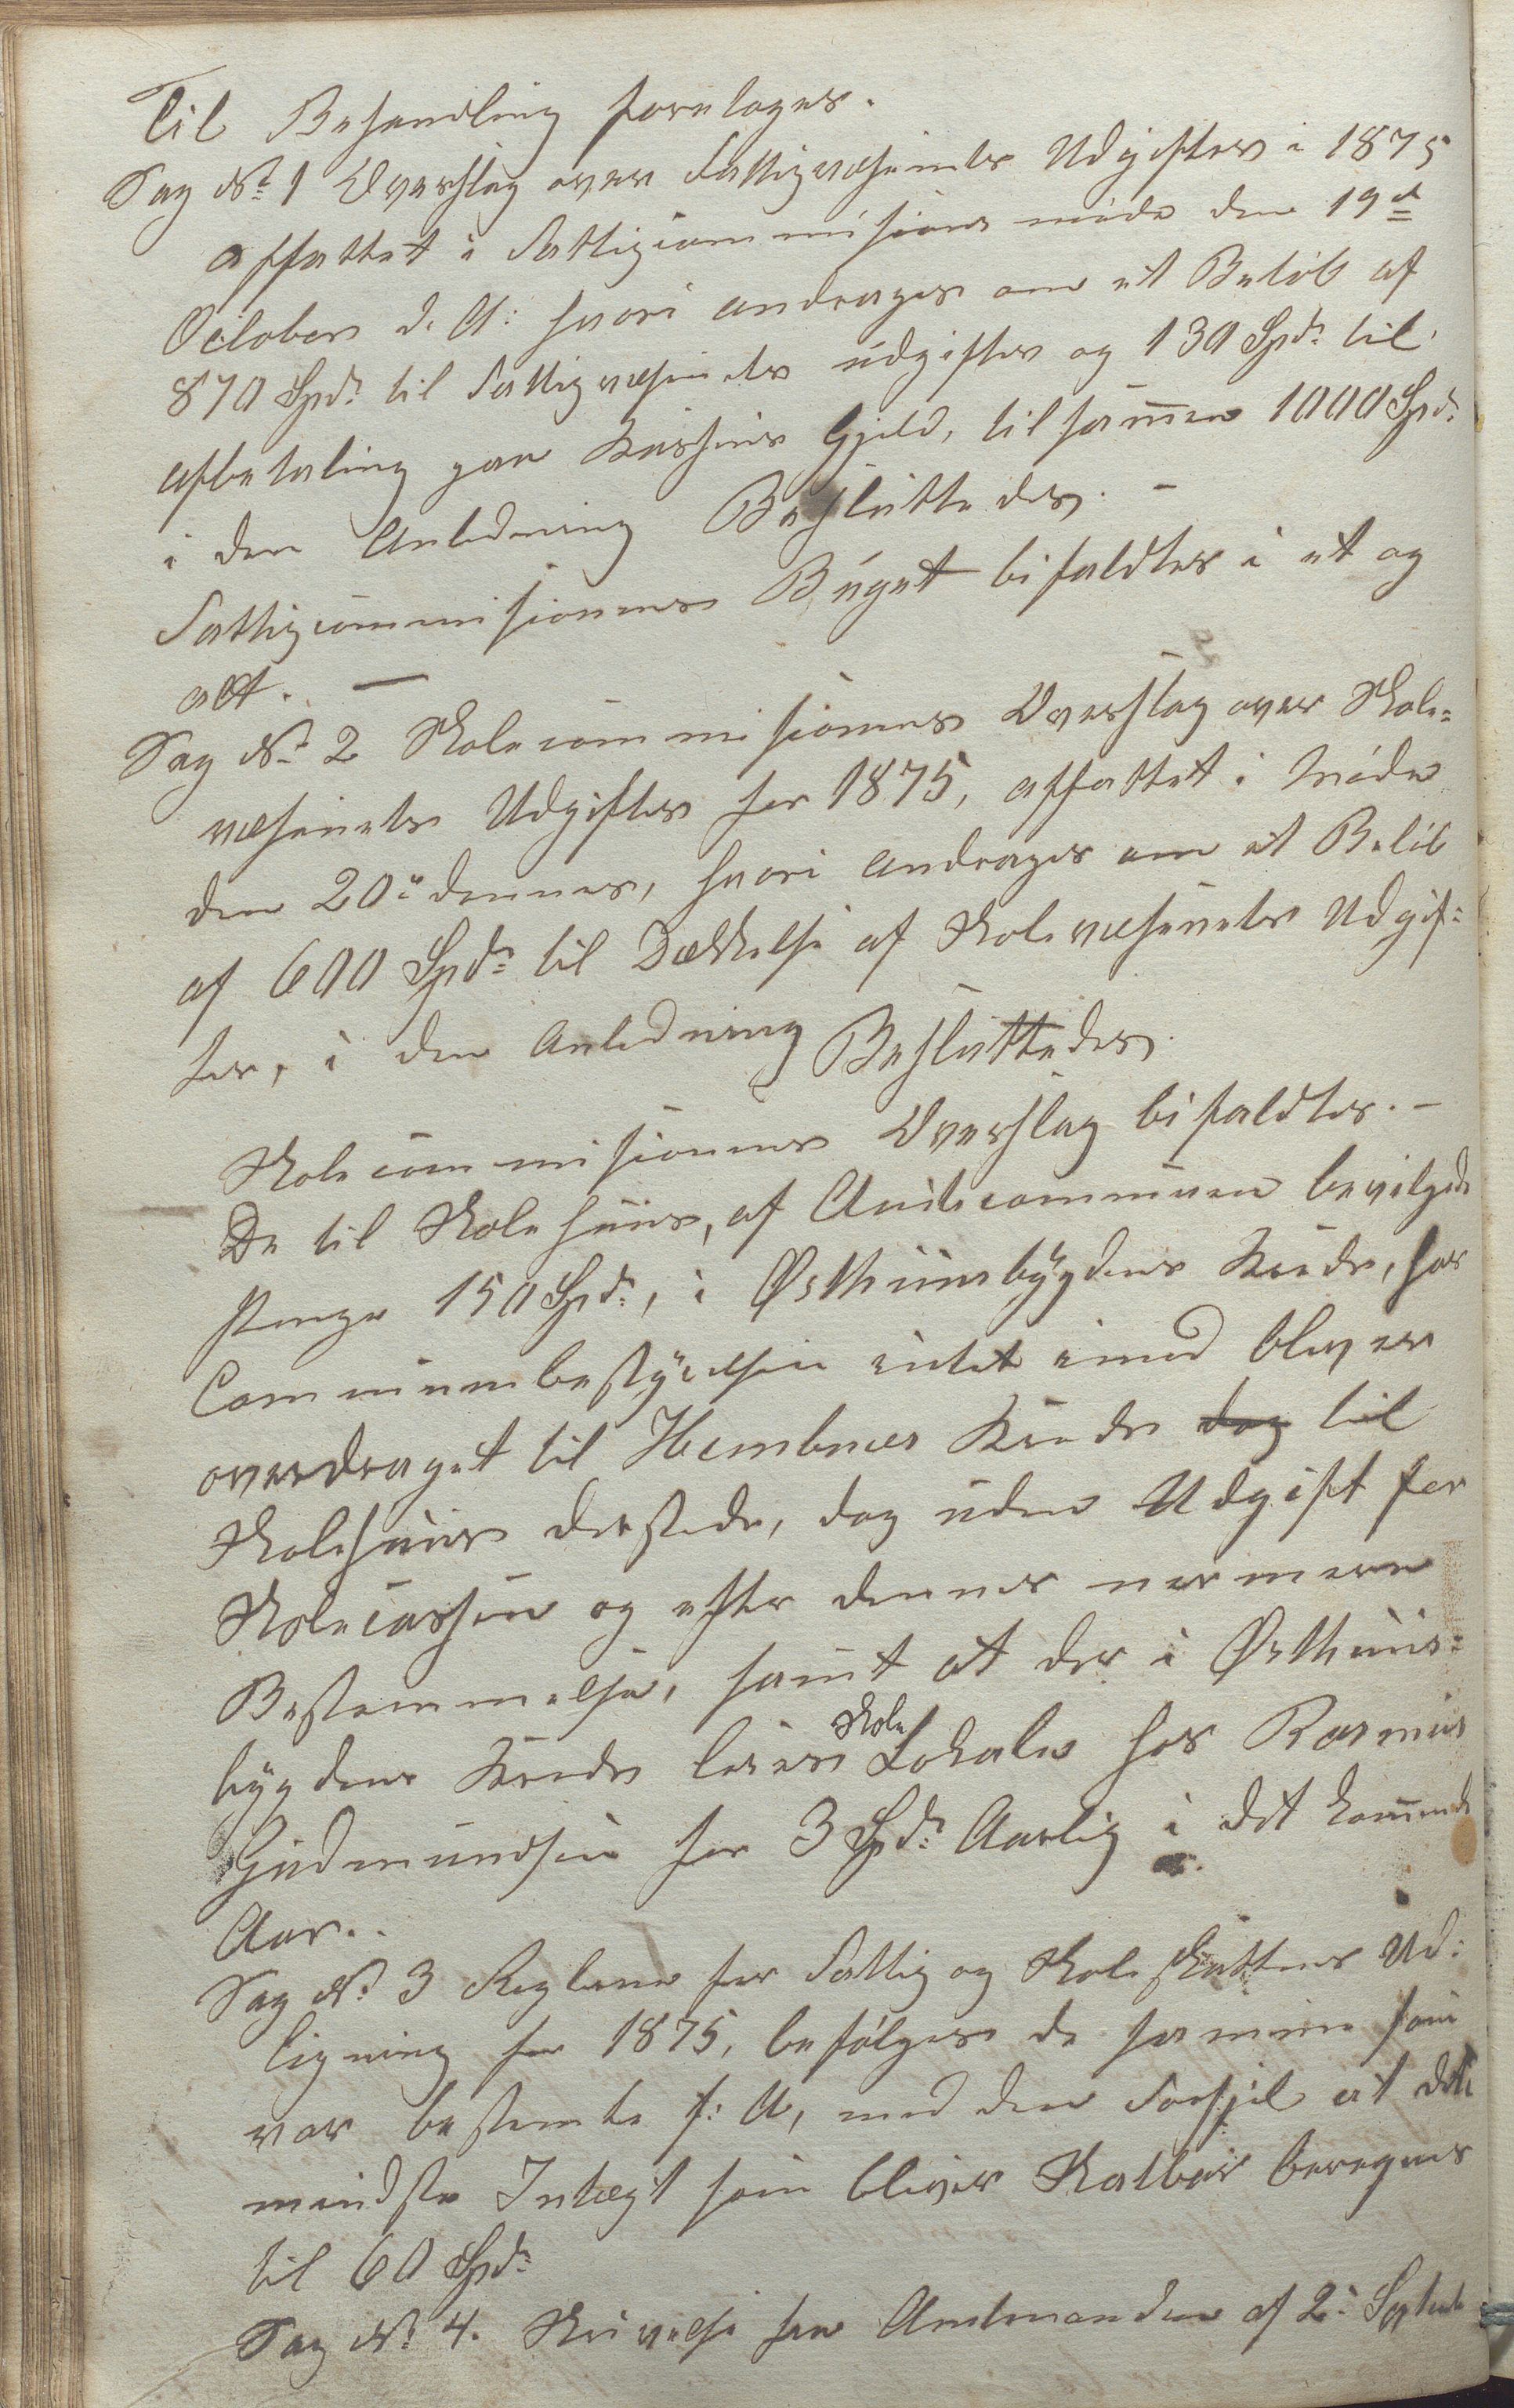 Til Behandling foretoges.
Sag No 1 Overslag over Fattigvæsenets Udgifter i 1875
affattet i Fattigcommisions møde den 19de
October d. A: hvori andrages om et Beløb af
870 Spd: til Fattigvæsenets udgifter og 130 Spd: til
afbetaling paa Kassens Gjeld, tilsammen 1000 Spd:
i den Anledning Besluttedes. –
Fattigcommisionens Buget bifaldtes i et og
alt. —
Sag No 2 Skolecommisionens Overslag over Skole=
væsenets Udgifter for 1875, affattet i Møde
den 20de dennes, hvori andrages om et Beløb
af 600 Spd: til Dækkelse af Skolevæsenets Udgif=
ter, i den Anledning Besluttedes.
Skolecommisionens Overslag bifaldtes. –
De til Skolehuus, af Amtscommunen bevilgede
Penge 150 Spd:, i Østhuusbygdens Kreds, har
Communbestyrelsen intet imod bliver
overdraget til Hembnes Kreds dog til
Skolehuus dersteds, dog uden Udgift for
Skolecassen og efter dennes nærmere
Bestemmelse, samt at der i Østhuus=
bygdens Kreds leies Skole Lokale hos Rasmus
Gudmundsen for 3 Spd: Aarlig i det kommende
Aar..
Sag No 3 Reglerne for Fattig og Skoleskattens Ud=
ligning for 1875, befølges de samme som
var bestemte f: A, med den Forskjel at det
mindste Intægt som bliver Skatbar beregnes
til 60 Spd:
Sag No 4. Skrivelse fra Amtmanden af 2: Septemb